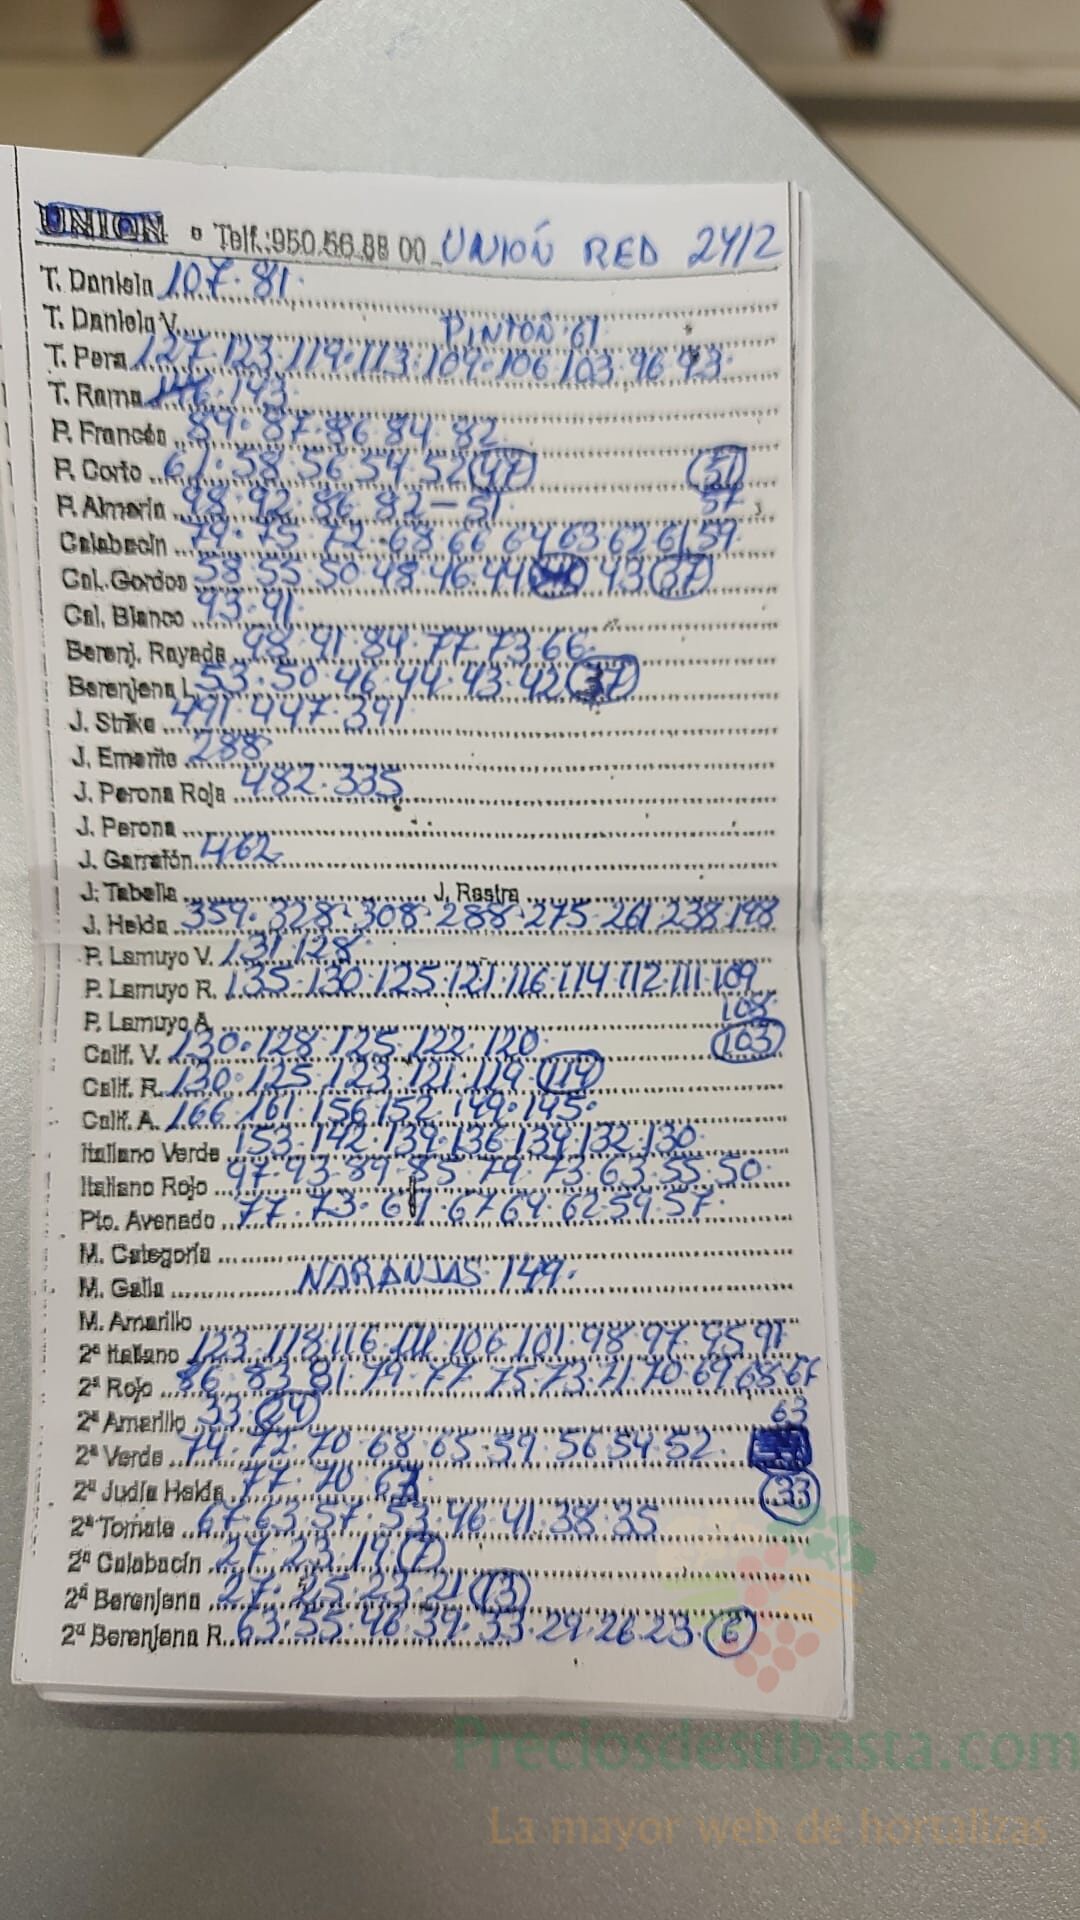 UNION • Telf.:950.56.88 00 UNIÓN RED 24/2
T. Daniela 107·81·
T. Daniela V. PINTÓN·61
T. Pera 127·123·119·113·109·106·103·96·93·
T. Rama 146·143
P. Francés 89·87·86·84·82
P. Corto 61·58·56·54·52 47 51
P. Almería 98·92·86·82-51· 57
Calabacín 79·75·72·68·66·64 63 62 61 59
Cal. Gordos 58·55·50·48·46·44 43 37
Cal. Blanco 93·91·
Berenj. Rayada 98·91·84·77·73·66·
Berenjena L. 53·50·46·44·43·42 37
J. Strike 491·447·391
J. Emerite 288
J. Perona Roja 482·335
J. Perona
J. Garrafón 462
J. Tabella J. Rastra
J. Helda 359·328·308·288·275·261 238·198
P. Lamuyo V. 131·128·
P. Lamuyo R. 135·130·125·121·116·114·112·111·109
P. Lamuyo A. 108·
Calif. V. 130·128·125·122·120· 103
Calif. R. 130·125·123·121·119· 114
Calif. A. 166·161·156·152·149·145·
Italiano Verde 153·142·139·136·134·132·130·
Italiano Rojo 97·93·89·85·79·73·63·55·50·
Pto. Avenado 77·73·69·67 64·62·59·57·
M. Categoría
M. Galia NARANJAS·149·
M. Amarillo
2ª Italiano 123·118·116·111·106·101·98·97·95·91
2ª Rojo 86·83·81·79·77·75·73·71·70·69·68·67
2ª Amarillo 33· 24 63
2ª Verde 74·72·70·68·65·59·56·54·52·
2ª Judía Helda 77·70 33
2ª Tomate 67·63·57·53·46·41·38·35
2ª Calabacín 27·23·19 7
2ª Berenjena 27·25·23·21 13
2ª Berenjena R. 63·55·46·39·33·29·26·23· 6
Preciosdesubasta.com
La mayor web de hortalizas